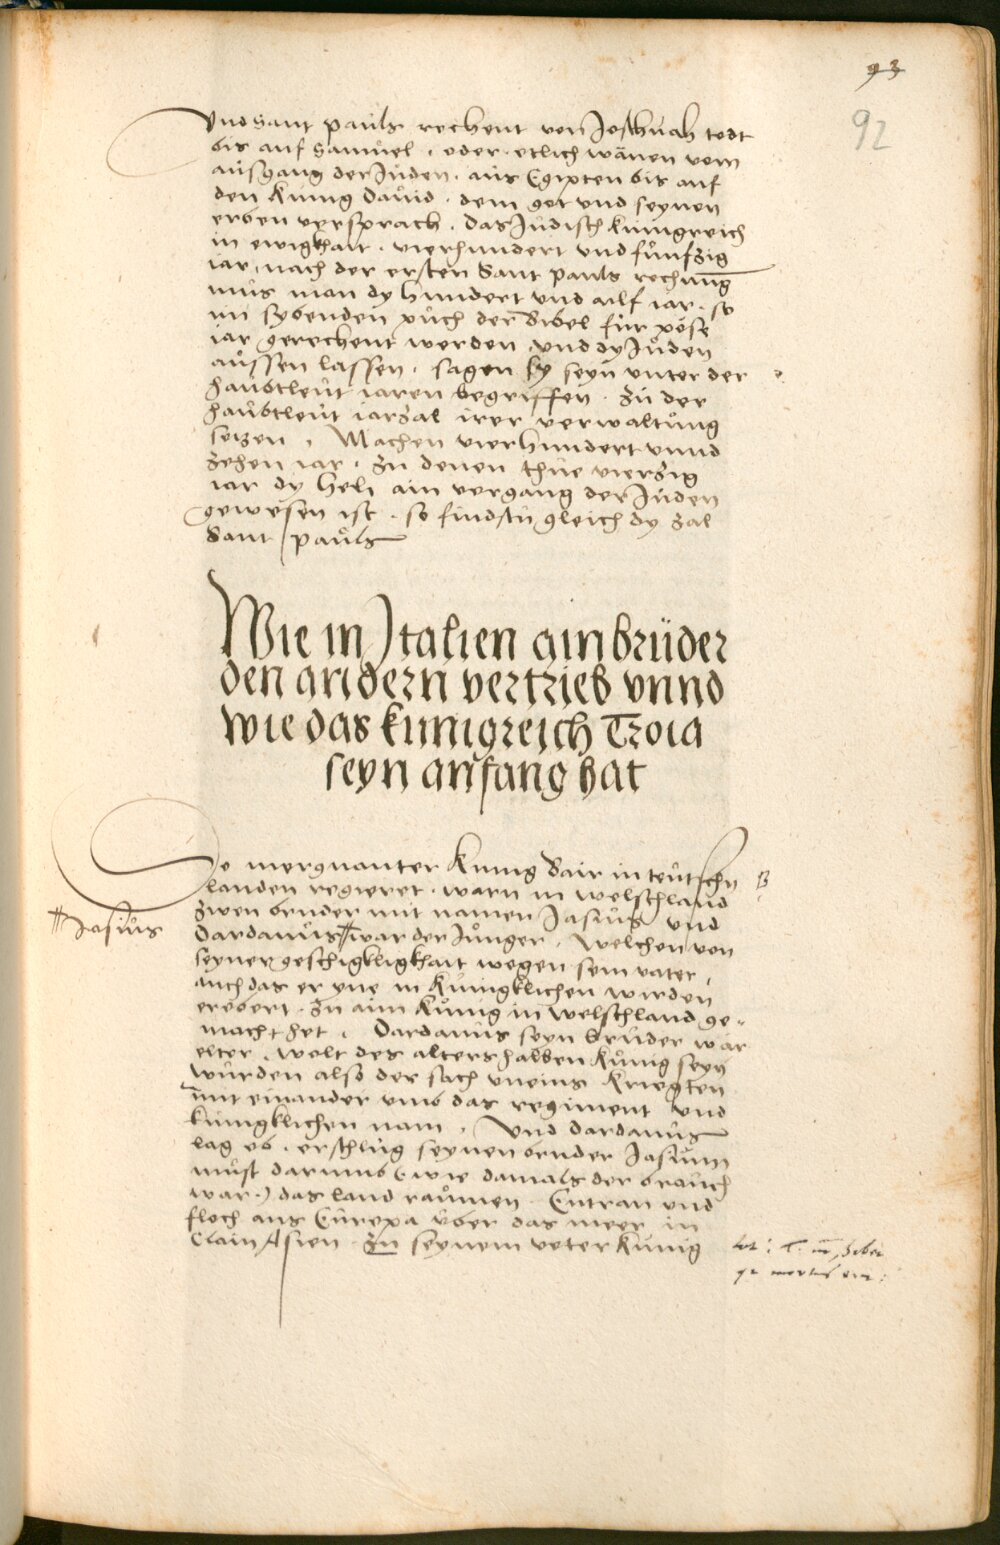 93
92
Vnd Sant pauls rechent von Joschuah todt
bis auf Samuel . oder etlich wänen vom
ausgang der Juden . aus Egipten bis auf
den Kunig Dauid . dem got vnd seynen
erben versprach . das Judisch kunigreich
in ewigkhait . vierhundert vnd funfzig
iar . nach der ersten Sant pauls rechnung
mus man dy hundert vnd ailf iar . so
im sybenden puch der Bibel für pöse
iar gerechent werden . vnd dy Juden
aussen lassen . sagen sy seyn vnter der
haubtleut iaren begriffen . zu der
haubtleut iarzal irer verwaltung
setzen . Machen vierhundert vnnd
zehen iar . zu denen thue vierzig
iar dy Heli ain vorgang der Juden
gewesen ist . so findstu gleich dy zal
Sant pauls
Wie in Italien ain brüder
den andern vertrieb vnnd
wie das kunigreich Troia
seyn anfang hat
So mergnanter Kunig Bair in teutschn
landen regieret . warn in welschland
zwen bruder mit namen Jasius vnd
Dardanus # war der Junger . Welchen von
# Jasius
seyner geschigkligkhait wegen sein vater .
auch das er yne in Kunigklichen wirden
ererbert . zu aim Kunig in welschland ge-
macht het . Dardanus seyn bruder war
elter . wolt des alters halben Kunig seyn
wurden also der sach vneins Kriegten
mit einander vmb das regiment vnd
kunigklichen nam . Vnd dardanus
lag ob . erschlug seynen bruder Jasium
must darumb (wie damals der brauch
war) das land raumen . Entran vnd
floch aus Europa vber das meer in
Clain Asien . zu seynem veter Kunig